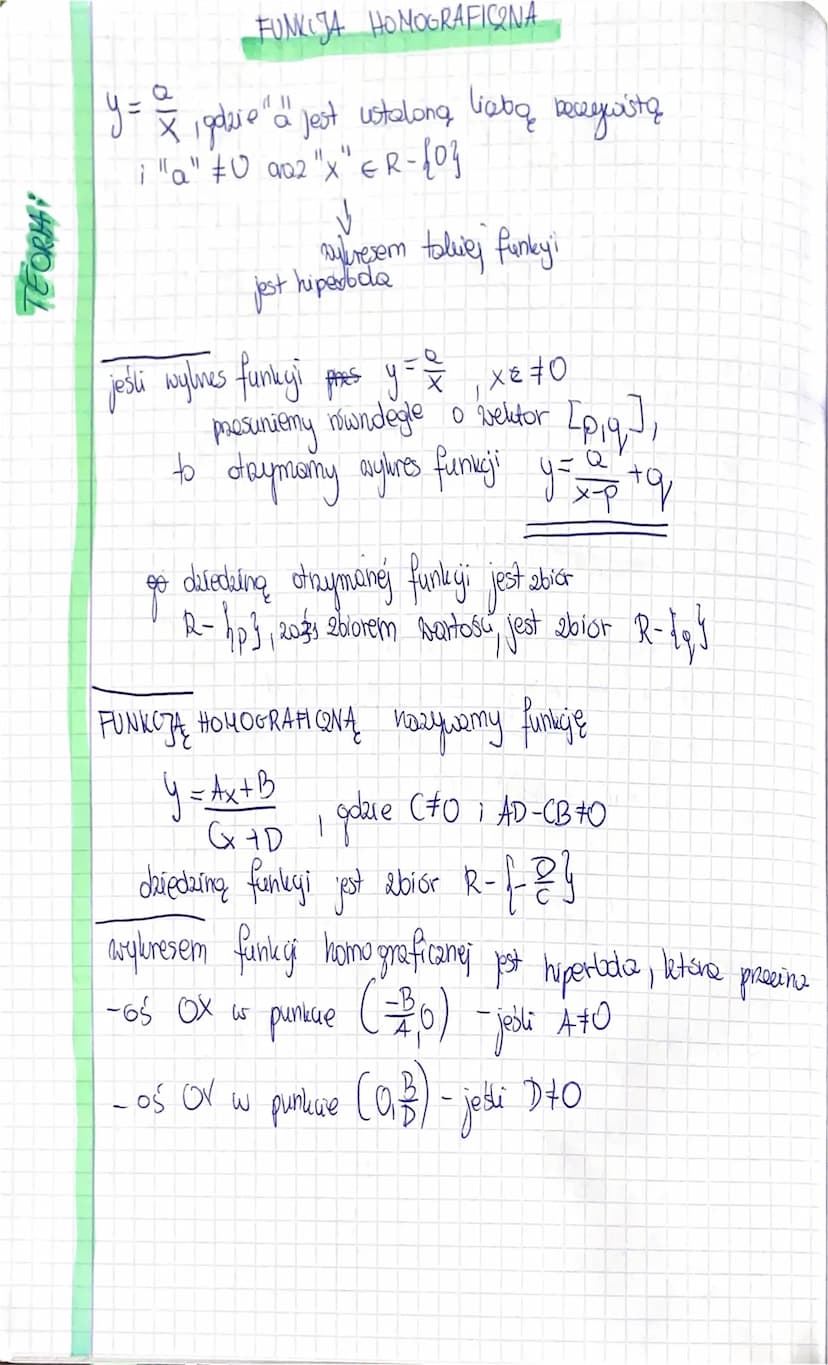 FUNKCJA HOMOGRAFICZNA
TEORIA:
y = a/x, gdzie "a" jest ustaloną liczbą rzeczywistą
i "a" ≠ 0 oraz "x" ∈ R - {0}
↓
wykresem takiej funkcji
jest hiperbola
jeśli wykres funkcji y = a/x, x ≠ 0
przesuniemy równolegle o wektor [p, q],
to otrzymamy wykres funkcji y = a/(x-p) + q
dziedziną otrzymanej funkcji jest zbiór
R - {p}, zaś zbiorem wartości, jest zbiór R - {q}
FUNKCJĘ HOMOGRAFICZNĄ nazywamy funkcję
y = (Ax + B)/(Cx + D), gdzie C ≠ 0 i AD - CB ≠ 0
dziedziną funkcji jest zbiór R - {-D/C}
wykresem funkcji homograficznej jest hiperbola, która przecina
- oś OX w punkcie (-B/A, 0) - jeśli A ≠ 0
- oś OY w punkcie (0, B/D) - jeśli D ≠ 0